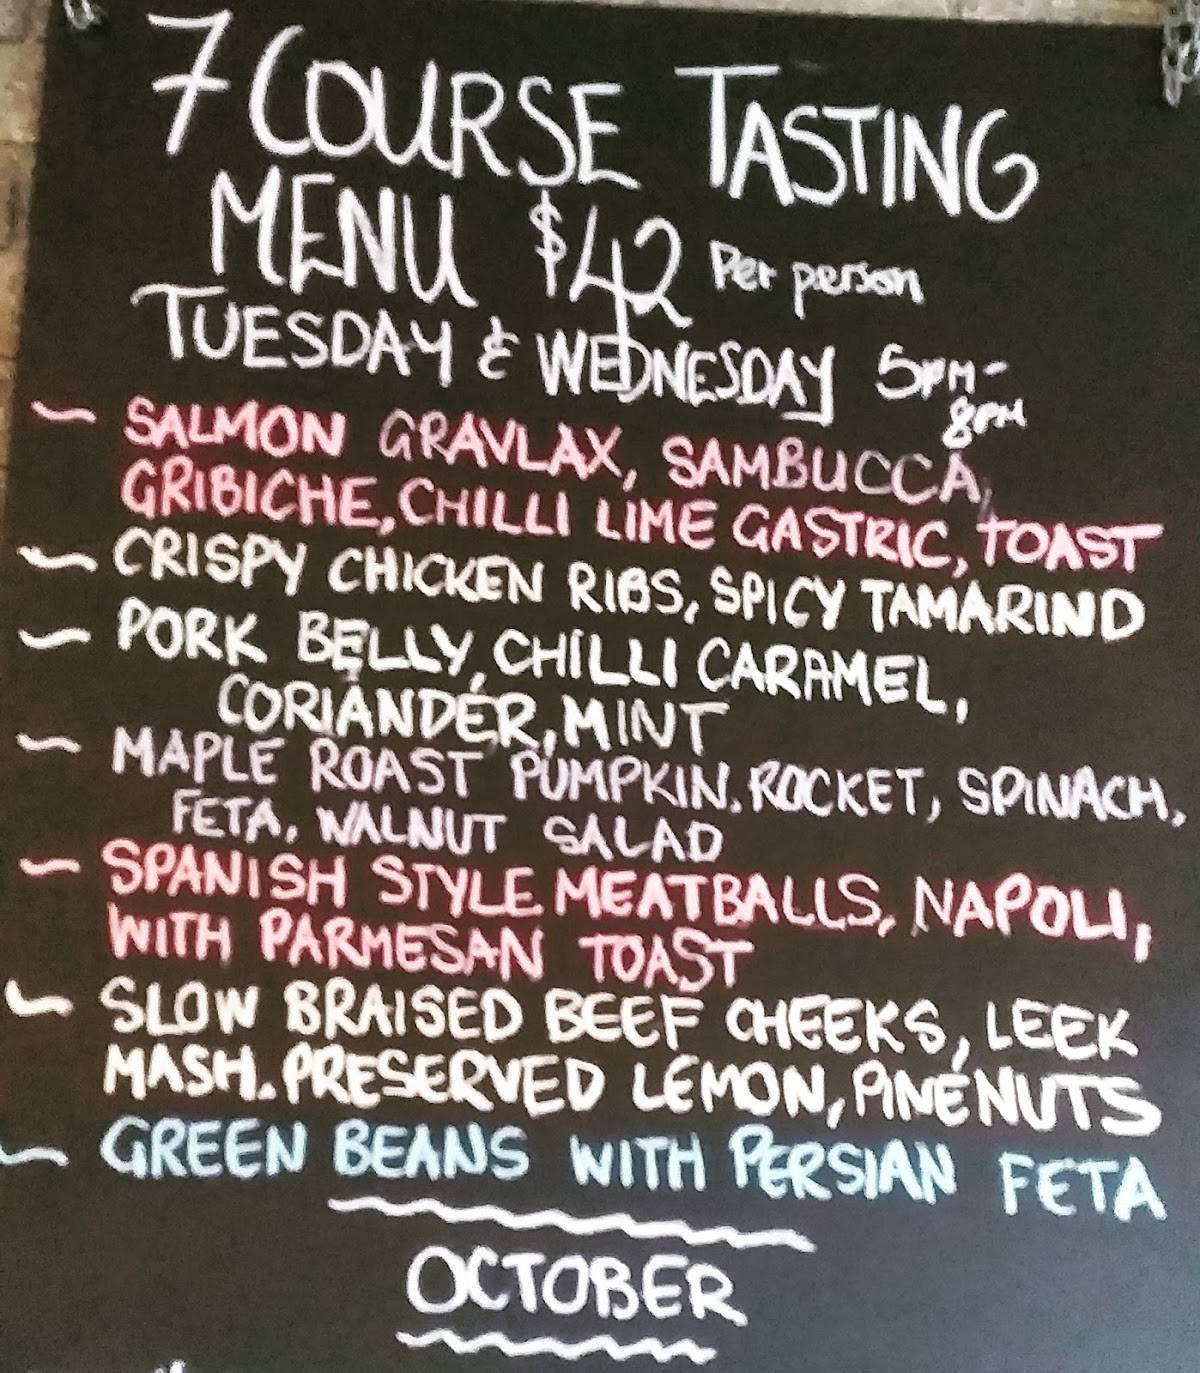 7 COURSE TASTING
MENU $42 Per person
TUESDAY & WEDNESDAY 5PM-
8PM
~ SALMON GRAVLAX, SAMBUCCA,
GRIBICHE, CHILLI LIME GASTRIC, TOAST
~ CRISPY CHICKEN RIBS, SPICY TAMARIND
~ PORK BELLY, CHILLI CARAMEL,
CORIANDER, MINT
~ MAPLE ROAST PUMPKIN, ROCKET, SPINACH,
FETA, WALNUT SALAD
~ SPANISH STYLE MEATBALLS, NAPOLI,
WITH PARMESAN TOAST
~ SLOW BRAISED BEEF CHEEKS, LEEK
MASH. PRESERVED LEMON, PINENUTS
~ GREEN BEANS WITH PERSIAN FETA
OCTOBER